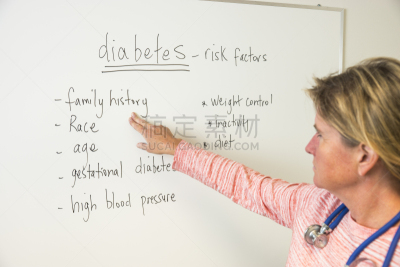 diabetes - risk factors
- family history
- Race
- age
- gestational diabetes
- high blood pressure
• Weight control
• Inactivity
• diet